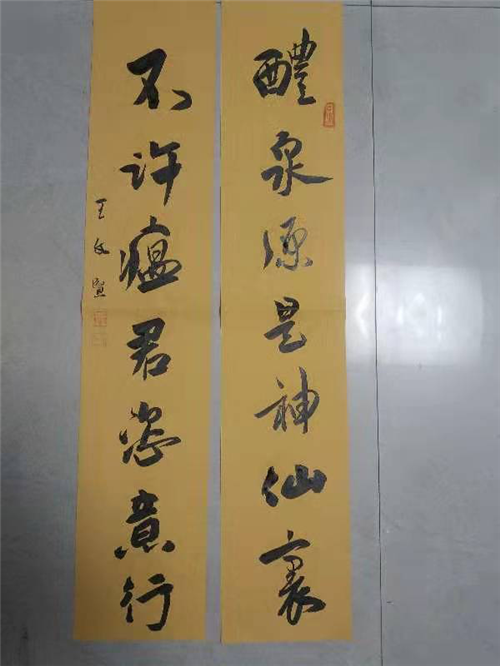 醴泉源是神仙裏
不许瘟君恣意行
王